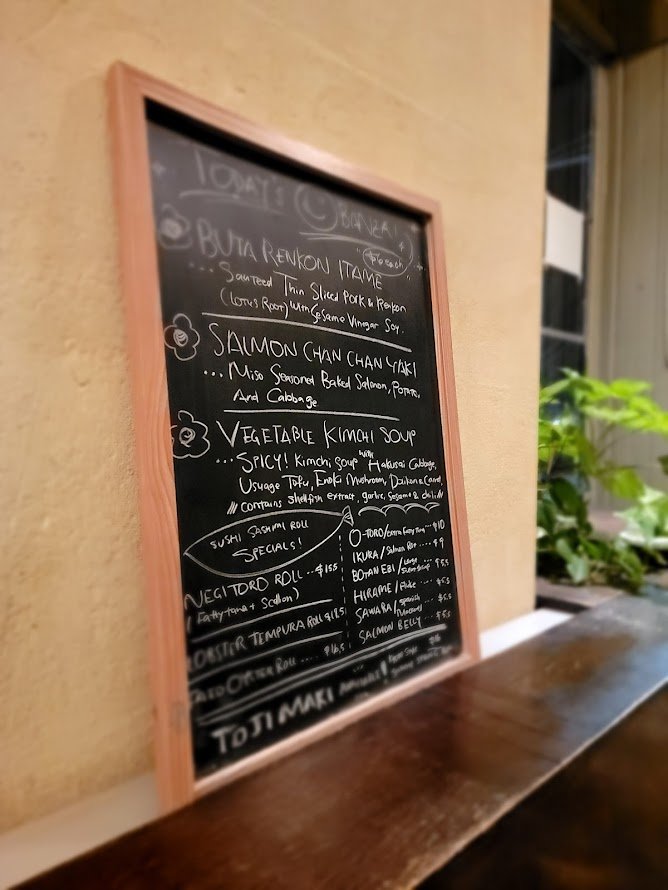 TODAY'S BANZAI
$6 each
BUTA RENKON ITAME
... Sauteed Thin Sliced Pork & Renkon
(Lotus Root) with Sesame Vinegar Soy.
SALMON CHAN CHAN YAKI
... Miso Seasoned Baked Salmon, Potato,
And Cabbage
VEGETABLE KIMCHI SOUP
... SPICY! Kimchi Soup with Hakusai Cabbage,
Usuage Tofu, Enoki Mushroom, Daikon & Carrot,
// contains shellfish extract, garlic, sesame & chili //
SUSHI SASHIMI ROLL
SPECIALS!
NEGITORO ROLL ... $15.5
(Fatty tuna + Scallion)
LOBSTER TEMPURA ROLL
OYSTER ROLL ....
O-TORO/extra fatty tuna ... $10
IKURA/Salmon Roe .... $9
BOTAN EBI/Large
HIRAME/Fluke .... $5.5
SAWARA/Spanish Mackerel ... $5.5
SALMON BELLY ... $5.5
TOJI MAKI